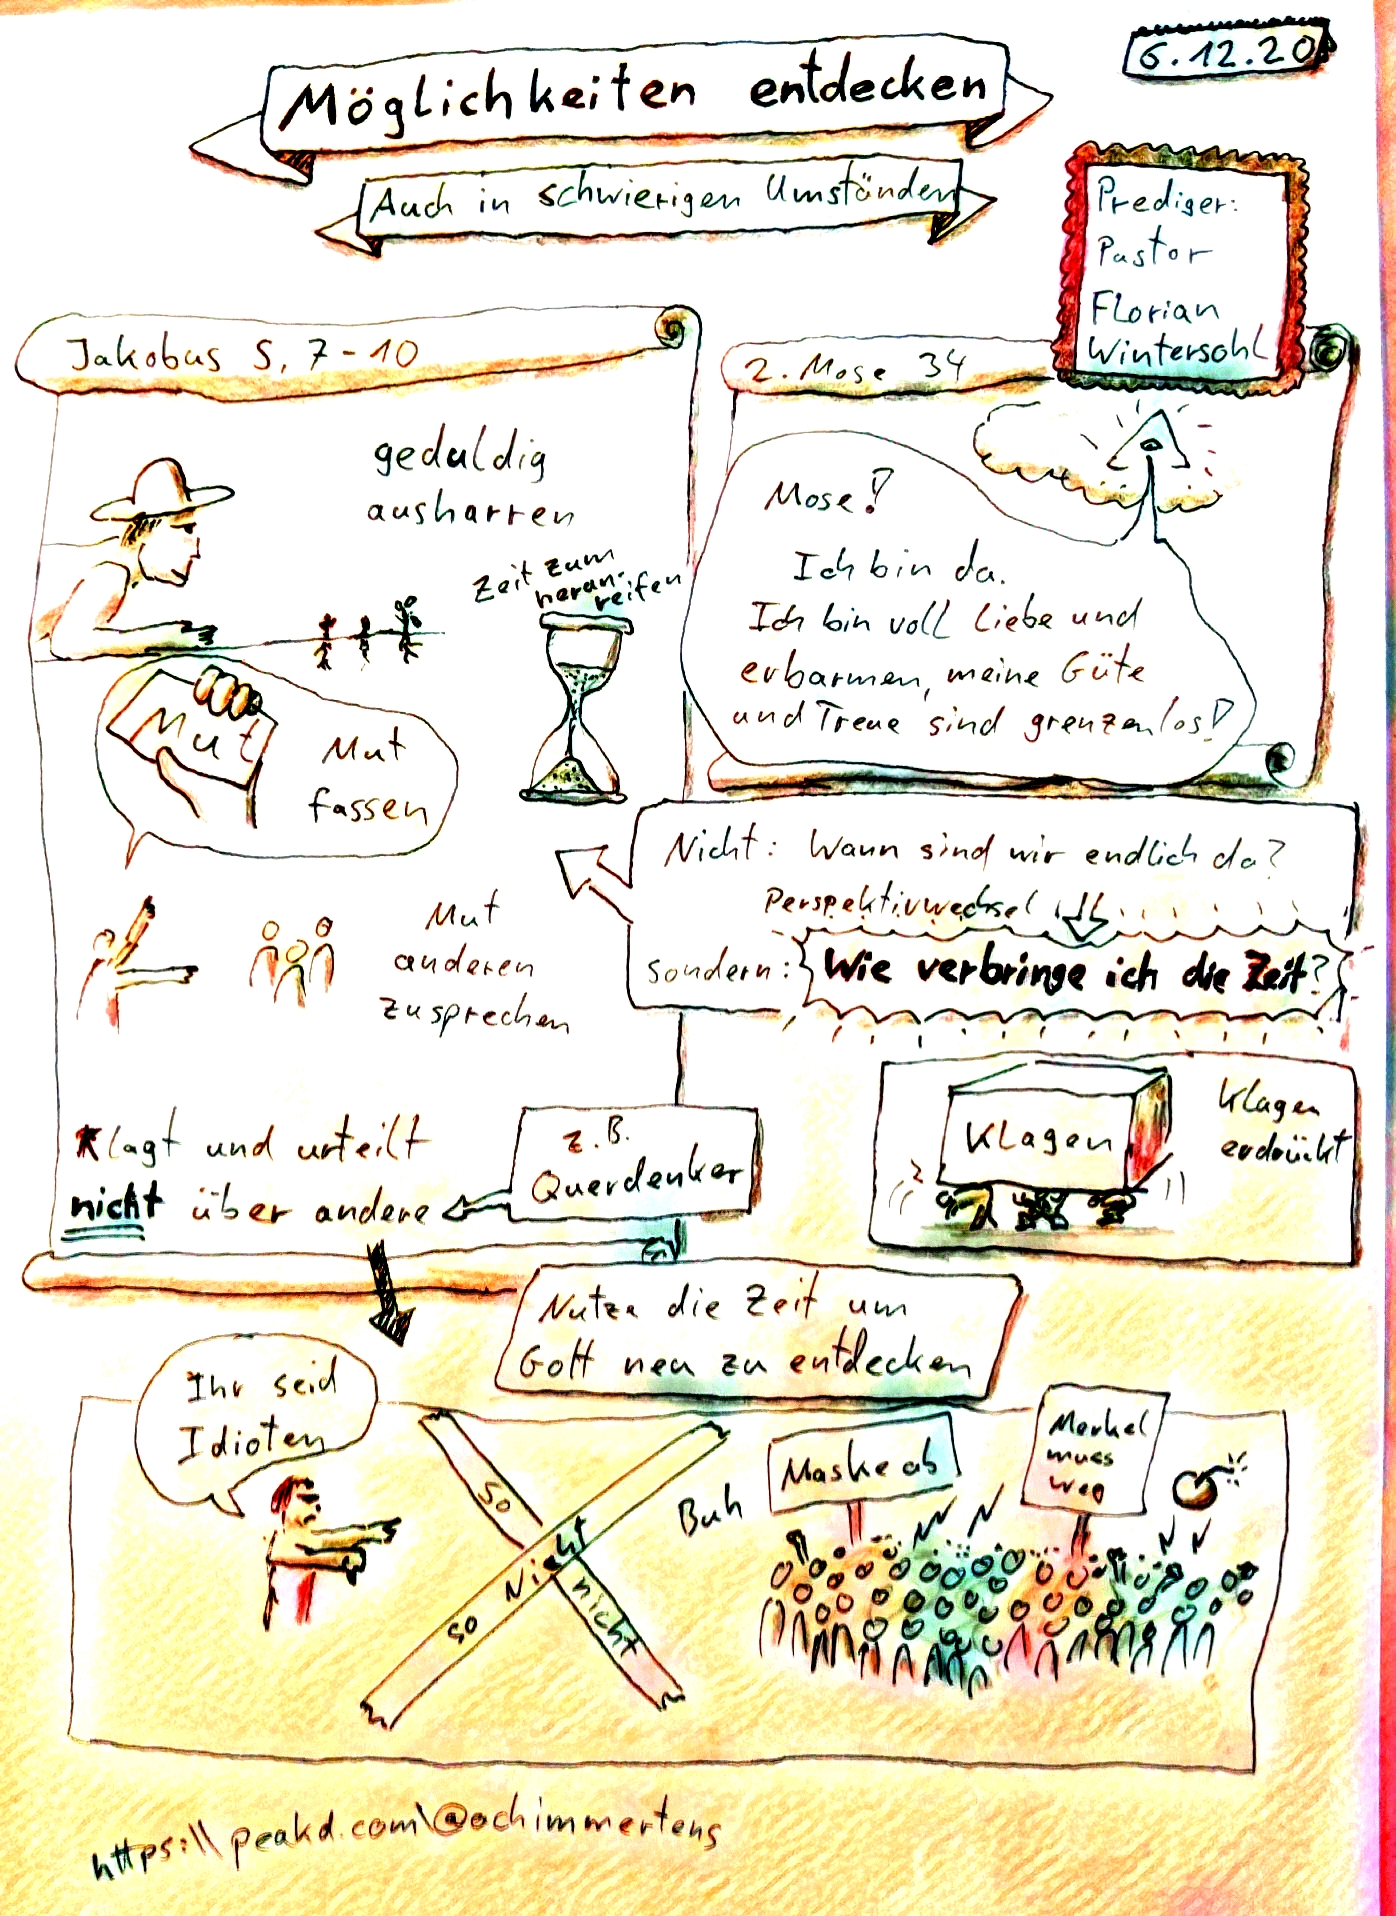 6.12.20
Möglichkeiten entdecken
Auch in schwierigen Umständen
Prediger:
Pastor
Florian
Wintersohl
Jakobus 5, 7-10
geduldig
ausharren
Zeit zum
heran-
reifen
Mut
Mut
fassen
Mut
anderen
zusprechen
Klagt und urteilt
nicht über andere
z.B.
Querdenker
2. Mose 34
Mose!
Ich bin da.
Ich bin voll Liebe und
erbarmen, meine Güte
und Treue sind grenzenlos!
Nicht: Wann sind wir endlich da?
Perspektivwechsel
sondern: Wie verbringe ich die Zeit?
Klagen
Klagen
erdrückt
Nutze die Zeit um
Gott neu zu entdecken
Ihr seid
Idioten
so nicht
so Nicht
Buh
Maske ab
Merkel
muss
weg
https:\\peakd.com\@ochimmertens